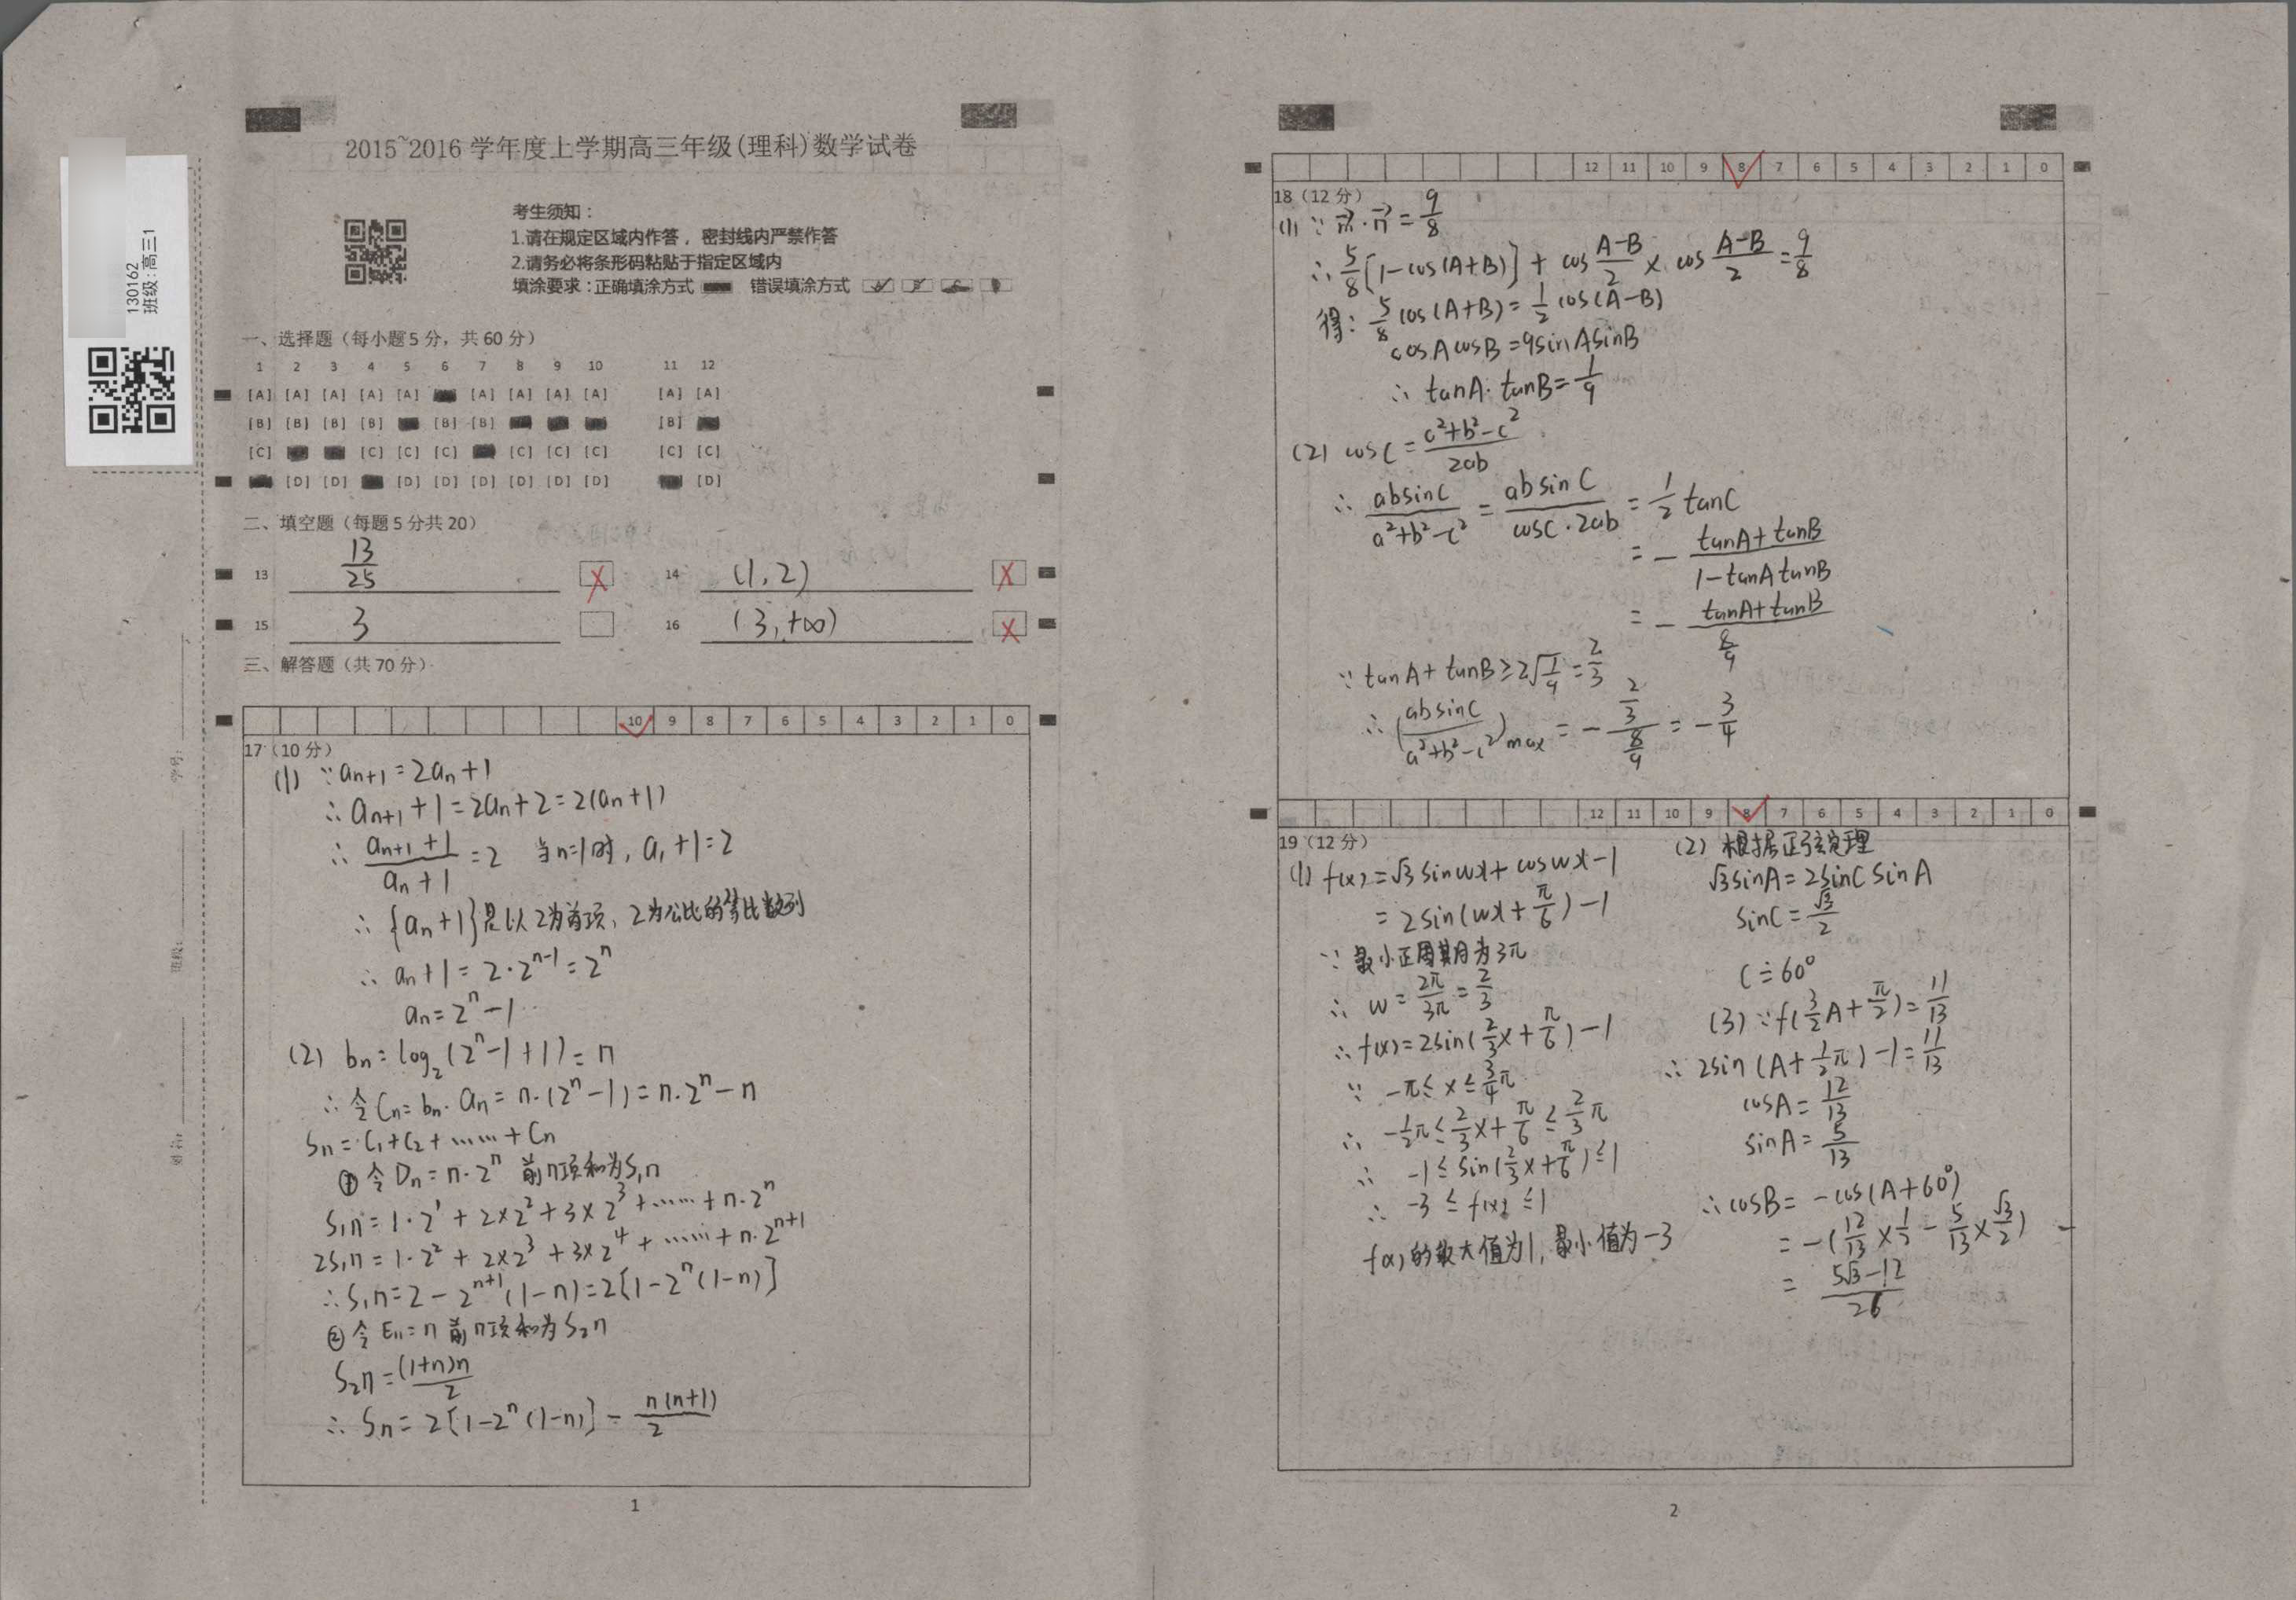 2015~2016 学年度上学期高三年级(理科)数学试卷
130162
班级:高三1
考生须知:
1.请在规定区域内作答，密封线内严禁作答
2.请务必将条形码粘贴于指定区域内
填涂要求:正确填涂方式 错误填涂方式
一、选择题（每小题5分，共60分）
1 2 3 4 5 6 7 8 9 10 11 12
[A] [A] [A] [A] [A] [A] [A] [A] [A] [A] [A]
[B] [B] [B] [B] [B] [B] [B]
[C] [C] [C] [C] [C] [C] [C] [C] [C]
[D] [D] [D] [D] [D] [D] [D] [D] [D]
二、填空题（每题5分共20）
13 13/25 X 14 (1,2) X
15 3 16 (3,+∞) X
三、解答题（共70分）
10 9 8 7 6 5 4 3 2 1 0
17（10分）
(1) ∵ aₙ₊₁=2aₙ+1
∴ aₙ₊₁+1=2aₙ+2=2(aₙ+1)
∴ (aₙ₊₁+1)/(aₙ+1)=2 当n=1时, a₁+1=2
∴ {aₙ+1}是以2为首项, 2为公比的等比数列
∴ aₙ+1=2·2ⁿ⁻¹=2ⁿ
aₙ=2ⁿ-1
(2) bₙ=log₂(2ⁿ-1+1)=n
∴ 令Cₙ=bₙ·aₙ=n·(2ⁿ-1)=n·2ⁿ-n
Sₙ=C₁+C₂+……+Cₙ
① 令Dₙ=n·2ⁿ 前n项和为S₁n
S₁n=1·2¹+2×2²+3×2³+……+n·2ⁿ
2S₁n=1·2²+2×2³+3×2⁴+……+n·2ⁿ⁺¹
∴ S₁n=2-2ⁿ⁺¹(1-n)=2[1-2ⁿ(1-n)]
② 令Eₙ=n 前n项和为S₂n
S₂n=(1+n)n/2
∴ Sₙ=2[1-2ⁿ(1-n)]-n(n+1)/2
1
12 11 10 9 8 7 6 5 4 3 2 1 0
18（12分）
(1) ∵ m⃗·n⃗=9/8
∴ 5/8[1-cos(A+B)]+cos (A-B)/2 × cos (A-B)/2=9/8
得: 5/8 cos(A+B)=1/2 cos(A-B)
cosAcosB=9sinAsinB
∴ tanA·tanB=1/9
(2) cosC=(c²+b²-c²)/2ab
∴ absinC/(a²+b²-c²)=absinC/(cosC·2ab)=1/2 tanC
=-(tanA+tanB)/(1-tanAtanB)
=-(tanA+tanB)/(8/9)
∵ tanA+tanB≥2√(1/9)=2/3
∴ (absinC/(a²+b²-c²))max=-(2/3)/(8/9)=-3/4
12 11 10 9 8 7 6 5 4 3 2 1 0
19（12分）
(1) f(x)=√3sinwx+coswx-1
=2sin(wx+π/6)-1
∵ 最小正周期为3π
∴ w=2π/3π=2/3
∴ f(x)=2sin(2/3x+π/6)-1
∵ -π≤x≤3/4π
∴ -1/2π≤2/3x+π/6≤2/3π
∴ -1≤sin(2/3x+π/6)≤1
∴ -3≤f(x)≤1
f(x)的最大值为1, 最小值为-3
(2) 根据正弦定理
√3sinA=2sinCsinA
sinC=√3/2
C=60°
(3) ∵ f(3/2A+π/2)=11/13
∴ 2sin(A+1/2π)-1=11/13
cosA=12/13
sinA=5/13
∴ cosB=-cos(A+60°)
=-(12/13×1/2-5/13×√3/2)
=(5√3-12)/26
2
学号:
班级:
姓名: